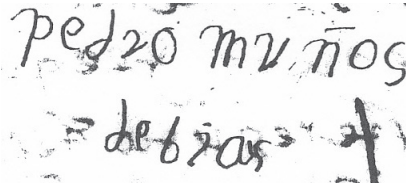 pedro muños
de bias